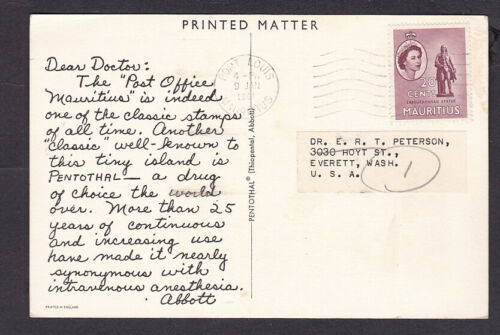 PRINTED MATTER
Dear Doctor:
The "Post Office
Mauritius" is indeed
one of the classic stamps
of all time. Another
"classic" well-known to
this tiny island is
PENTOTHAL — a drug
of choice the world
over. More than 25
years of continuous
and increasing use
have made it nearly
synonymous with
intravenous anesthesia.
Abbott
PRINTED IN ENGLAND
PENTOTHAL® (Thiopental, Abbott)
PORT LOUIS
9 JAN
MAURITIUS
20
CENTS
LABOURDONNAIS STATUE
MAURITIUS
DR. E. R. T. PETERSON,
3030 HOYT ST.,
EVERETT, WASH.
U. S. A.
1